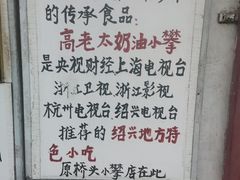 的传承食品:
高老太奶油小攀
是央视财经上海电视台
浙江卫视、浙江影视
杭州电视台绍兴电视台
推荐的绍兴地方特
色小吃
原桥头小攀店在此